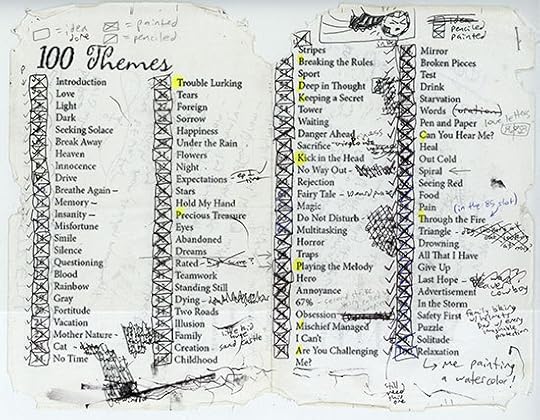 = idea
done
= painted
= penciled
100 Themes
Introduction
Love
Light
Dark
Seeking Solace
Break Away
Heaven
Innocence
Drive
Breathe Again
Memory
Insanity
Misfortune
Smile
Silence
Questioning
Blood
Rainbow
Gray
Fortitude
Vacation
Mother Nature
Cat
No Time
Trouble Lurking
Tears
Foreign
Sorrow
Happiness
Under the Rain
Flowers
Night
Expectations
Stars
Hold My Hand
Precious Treasure
Eyes
Abandoned
Dreams
Rated
Teamwork
Standing Still
Dying
Two Roads
Illusion
Family
Creation - sand castle
Childhood
Stripes
Breaking the Rules
Sport
Deep in Thought
Keeping a Secret
Tower
Waiting
Danger Ahead
Sacrifice
Kick in the Head
No Way Out
Rejection
Fairy Tale
Magic
Do Not Disturb
Multitasking
Horror
Traps
Playing the Melody
Hero
Annoyance
67%
Obsession
Mischief Managed
I Can't
Are You Challenging
Me?
still
need
this
one
idea
penciled
painted
Mirror
Broken Pieces
Test
Drink
Starvation
Words
Pen and Paper love letters
Can You Hear Me?
Heal
Out Cold
Spiral
Seeing Red
Food
Pain (in the 85 slot)
Through the Fire
Triangle
Drowning
All That I Have
Give Up
Last Hope
Advertisement cowboy
In the Storm
Safety First
Puzzle
Solitude
Relaxation
me painting
a watercolor!